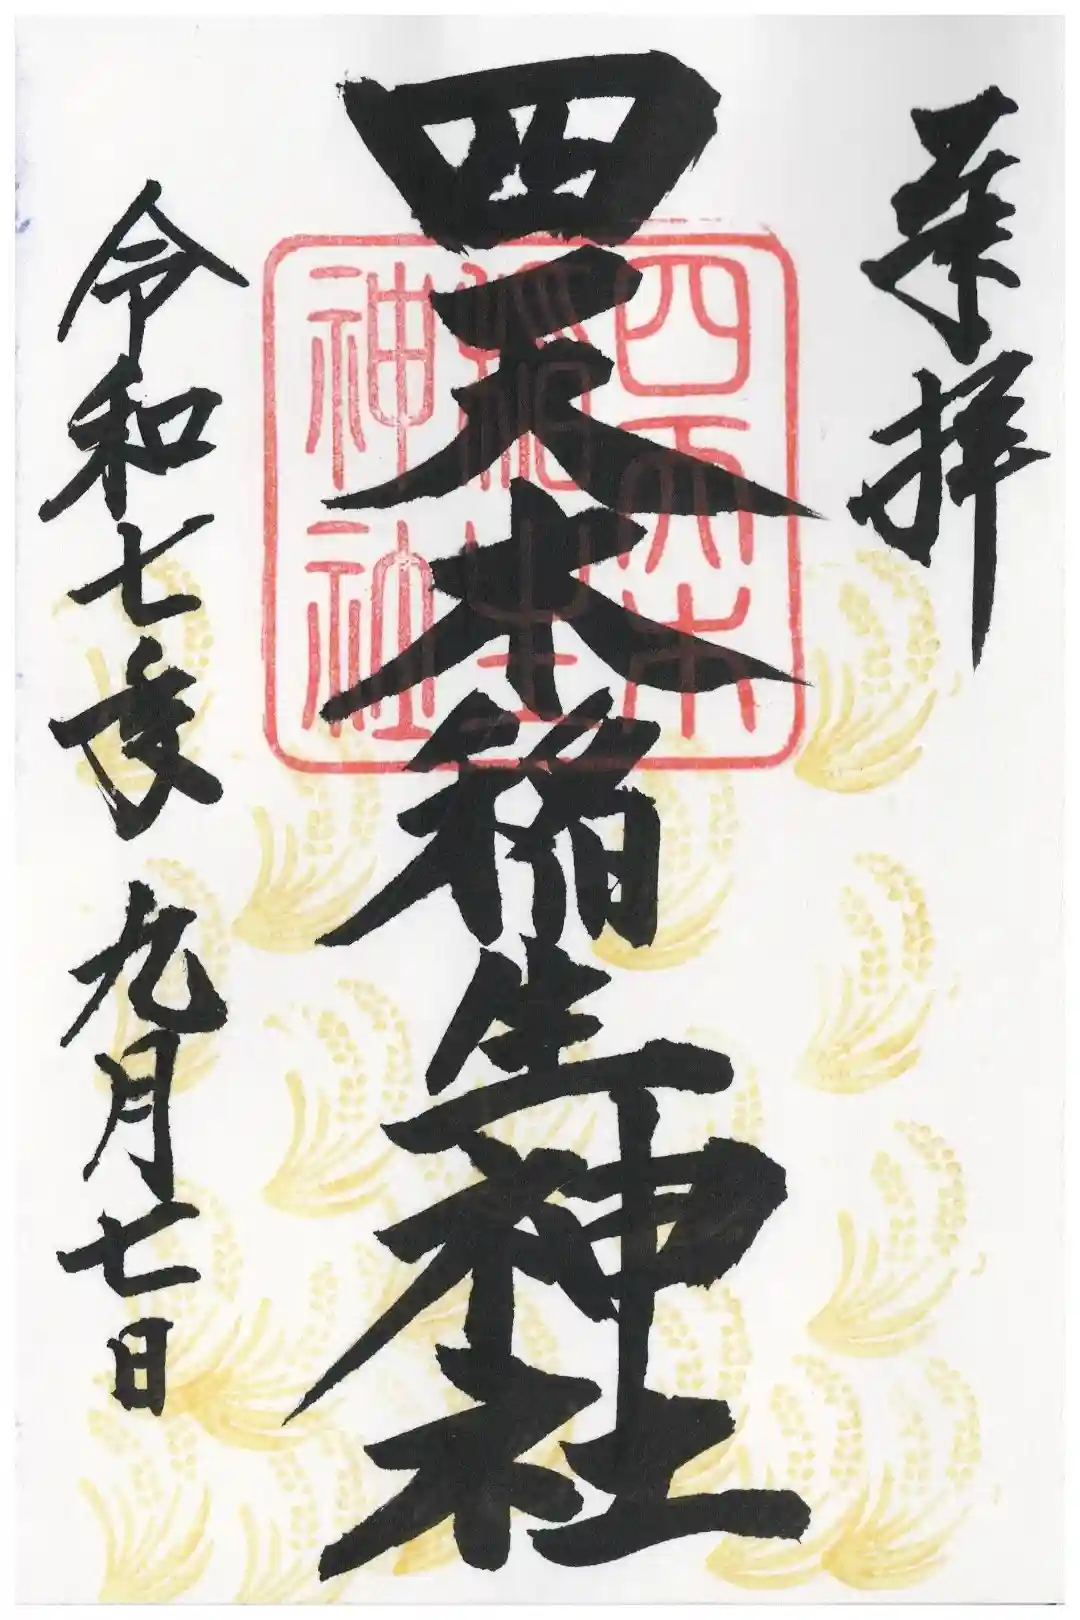 奉拝
四天木稲生神社
令和七年九月七日
四天木
稲生
神社